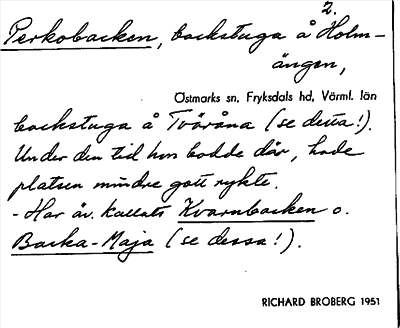 2.
Perkobacken, backstuga å Holm-
ängen,
Östmarks sn, Fryksdals hd, Värml. län
backstuga å Tvåråna (se detta!).
Under den tid hon bodde där, hade
platsen mindre gott rykte.
- Har äv. kallats Kvarnbacken o.
Backa-Maja (se dessa!).
RICHARD BROBERG 1951